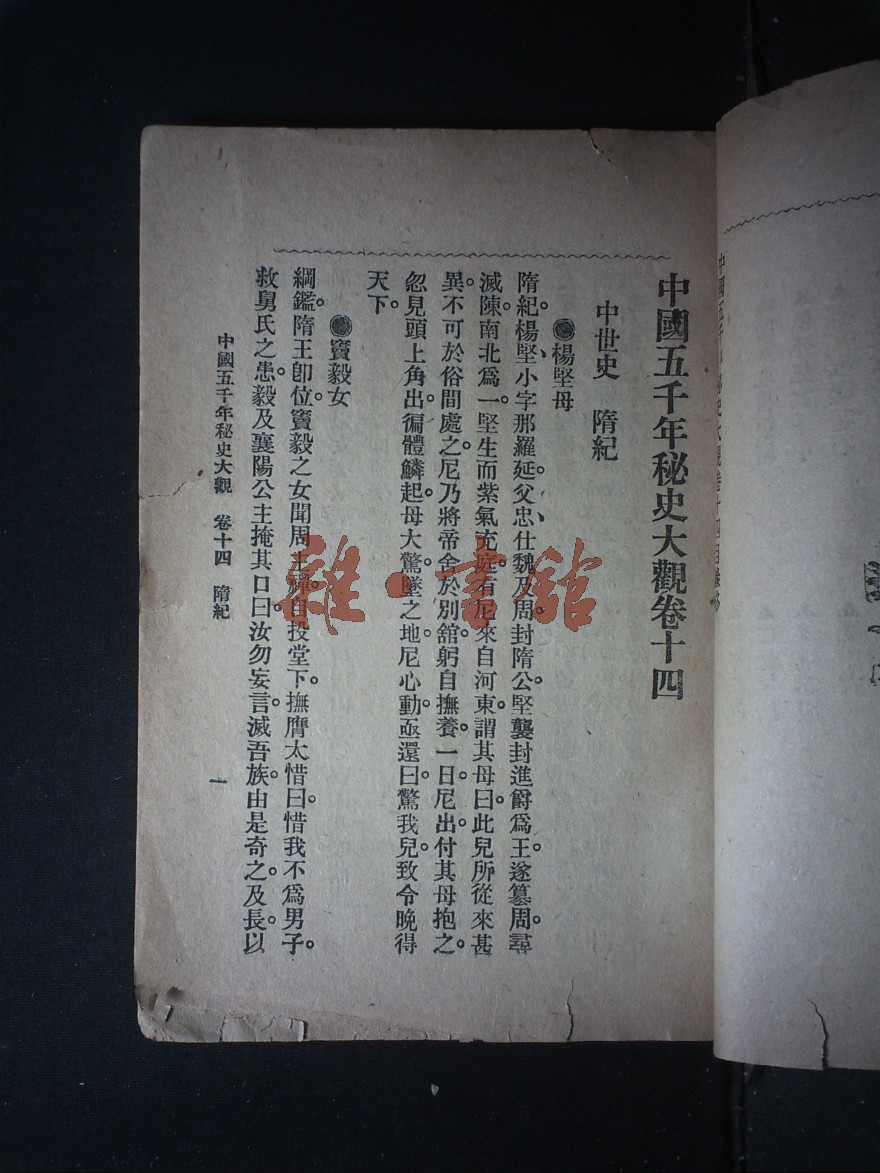 中國五千年秘史大觀卷十四
中世史 隋紀
◉楊堅母
隋紀楊堅、小字那羅延。父忠、仕魏及周。封隋公。堅襲封進爵爲王。遂篡周。尋
滅陳。南北爲一。堅生而紫氣充庭。有尼來自河東。謂其母曰。此兒所從來甚
異。不可於俗間處之。尼乃將帝舍於別舘。躬自撫養。一日尼出。付其母抱之。
忽見頭上角出。徧體鱗起。母大驚。墜之地。尼心動。亟還曰。驚我兒。致令晚得
天下。
◉竇毅女
綱鑑隋王卽位。竇毅之女聞周主禪。自投堂下。撫膺太惜曰。惜我不爲男子。
救舅氏之患。毅及襄陽公主掩其口曰。汝勿妄言。滅吾族。由是奇之。及長。以
中國五千年秘史大觀 卷十四 隋紀
一
雜·書館